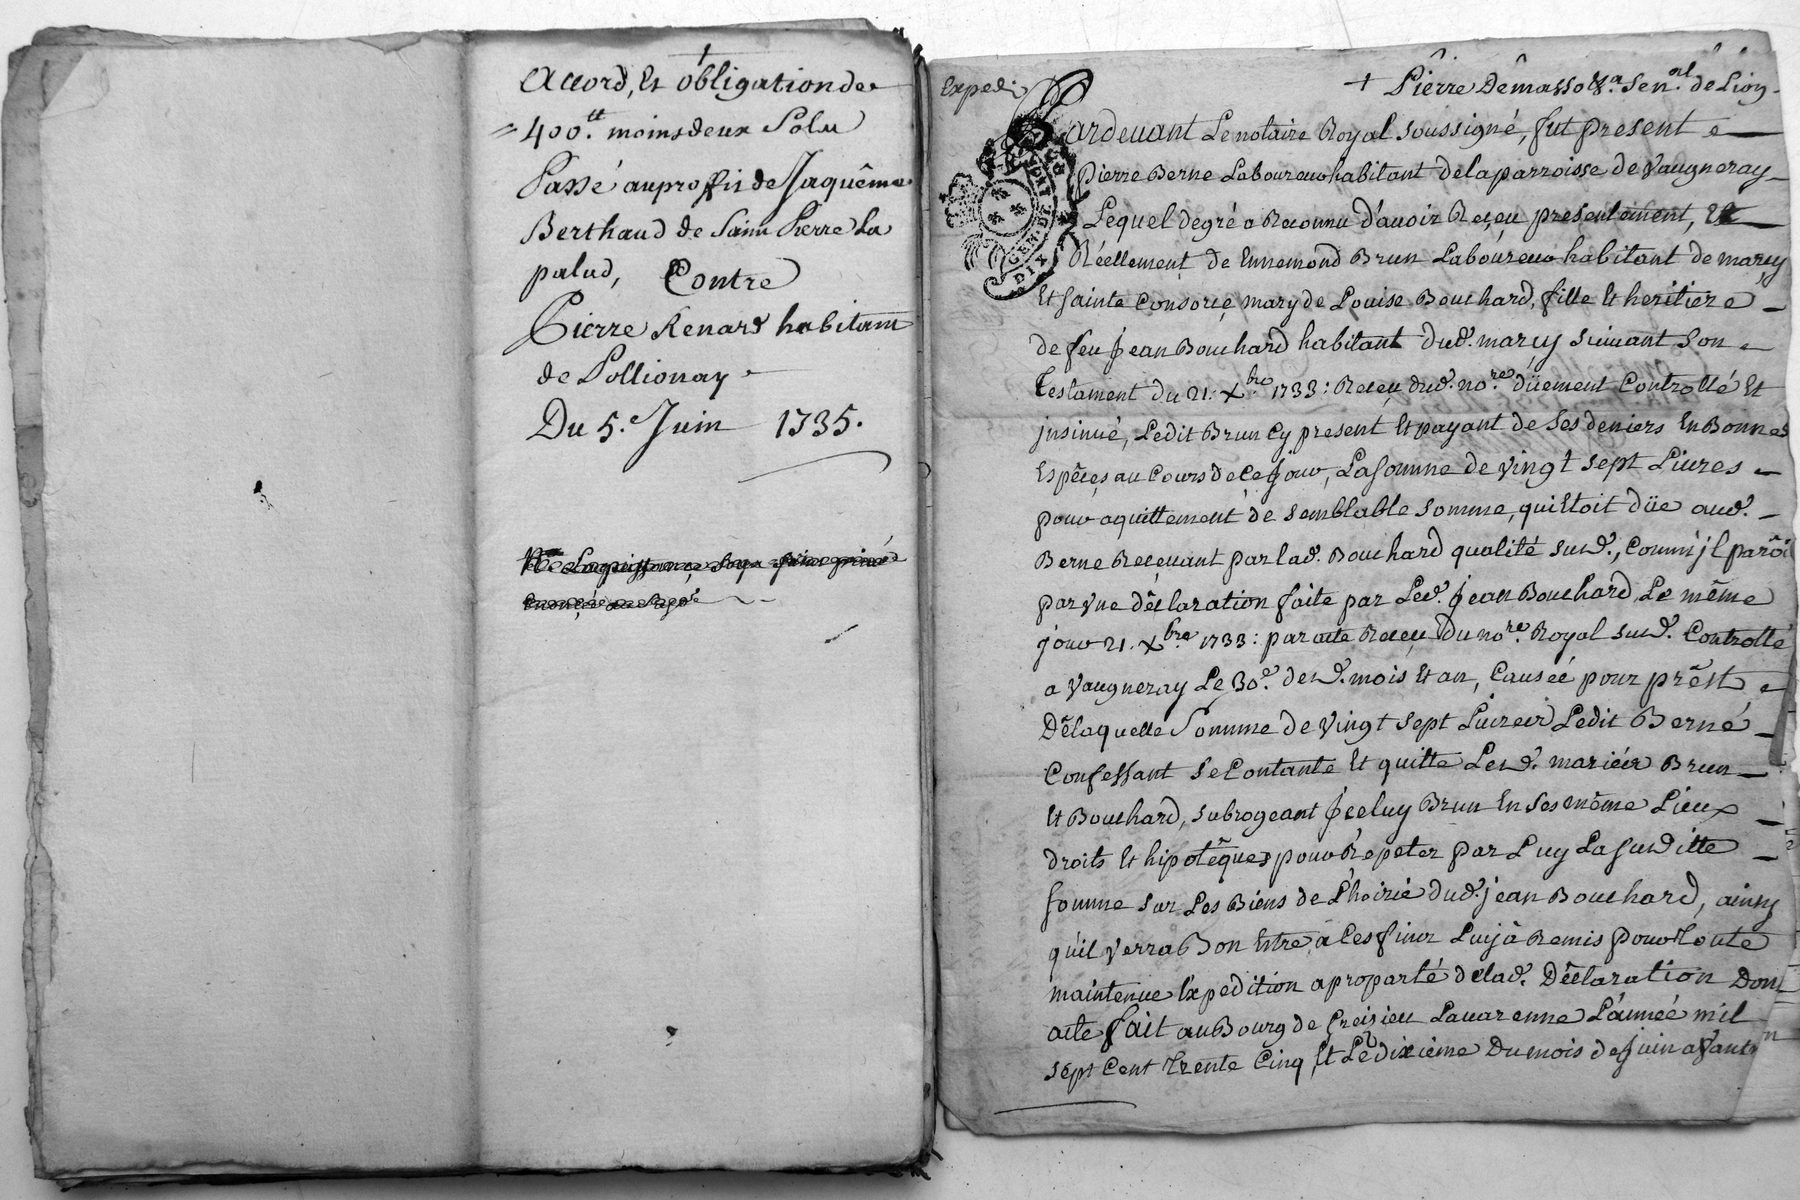 Accord, Et obligation de
400.tt moins deux Solz
Passé au profit de Jaquême
Berthaud de Saint Pierre La
palud, Contre
Pierre Renard habitant
de Pollionay
Du 5.e Juin 1735.
Expedié
+ Piêrre Dêmasso Sen.al de Lion
Pardevant Le notaire Royal soussigné, fut present
Pierre Berne Laboureur habitant de la parroisse de Vaugneray
Lequel de gré a Reconnu d'avoir Reçeu presentement, Et
Réellement de Ennemond Brun Laboureur habitant de marcy
Et sainte Consorce, mary de Louise Bouchard, fille Et heritiere
de feu Jean Bouchard habitant dud. marcy suivant Son
Testament du 21. Xbre 1733: Receu dud. nore. düement Controllé Et
jnsinué, Ledit Brun Cy present Et payant de Ses deniers En Bonnes
Espêces au Cours de Ce jour, La Somme de vingt sept Livres
pour aquittement de semblable somme, qui Etoit düe aud.
Berne Recevant par lad. Bouchard qualité susd., Comm'jl parôi
par vne dêclaration faite par Led. Jean Bouchard Le même
jour 21. Xbre 1733: par acte Receu Du nore. Royal susd. Controllé
a Vaugneray Le 30e. desd. mois Et an, Causéé pour prêst,
Dêlaquelle Somme de vingt sept Livres Ledit Berne
Confessant se Contante Et quitte Lesd. mariés Brun
Et Bouchard, subrogeant Jceluy Brun En Ses même Lieux
droits Et hipotêques pour Rêpeter par Luy La susditte
somme sur Les Biens de L'hoirie dud. jean Bouchard, ainsy
qu'il verra Bon Estre a Ces fins Luy à Remis pour Toute
maintenue Expedition a proparté de lad. Dêclaration Dont
acte fait au Bourg de Greisieu Lavarenne L'année mil
sept Cent Trente Cinq, Et Le dixième Du mois de Juin avant